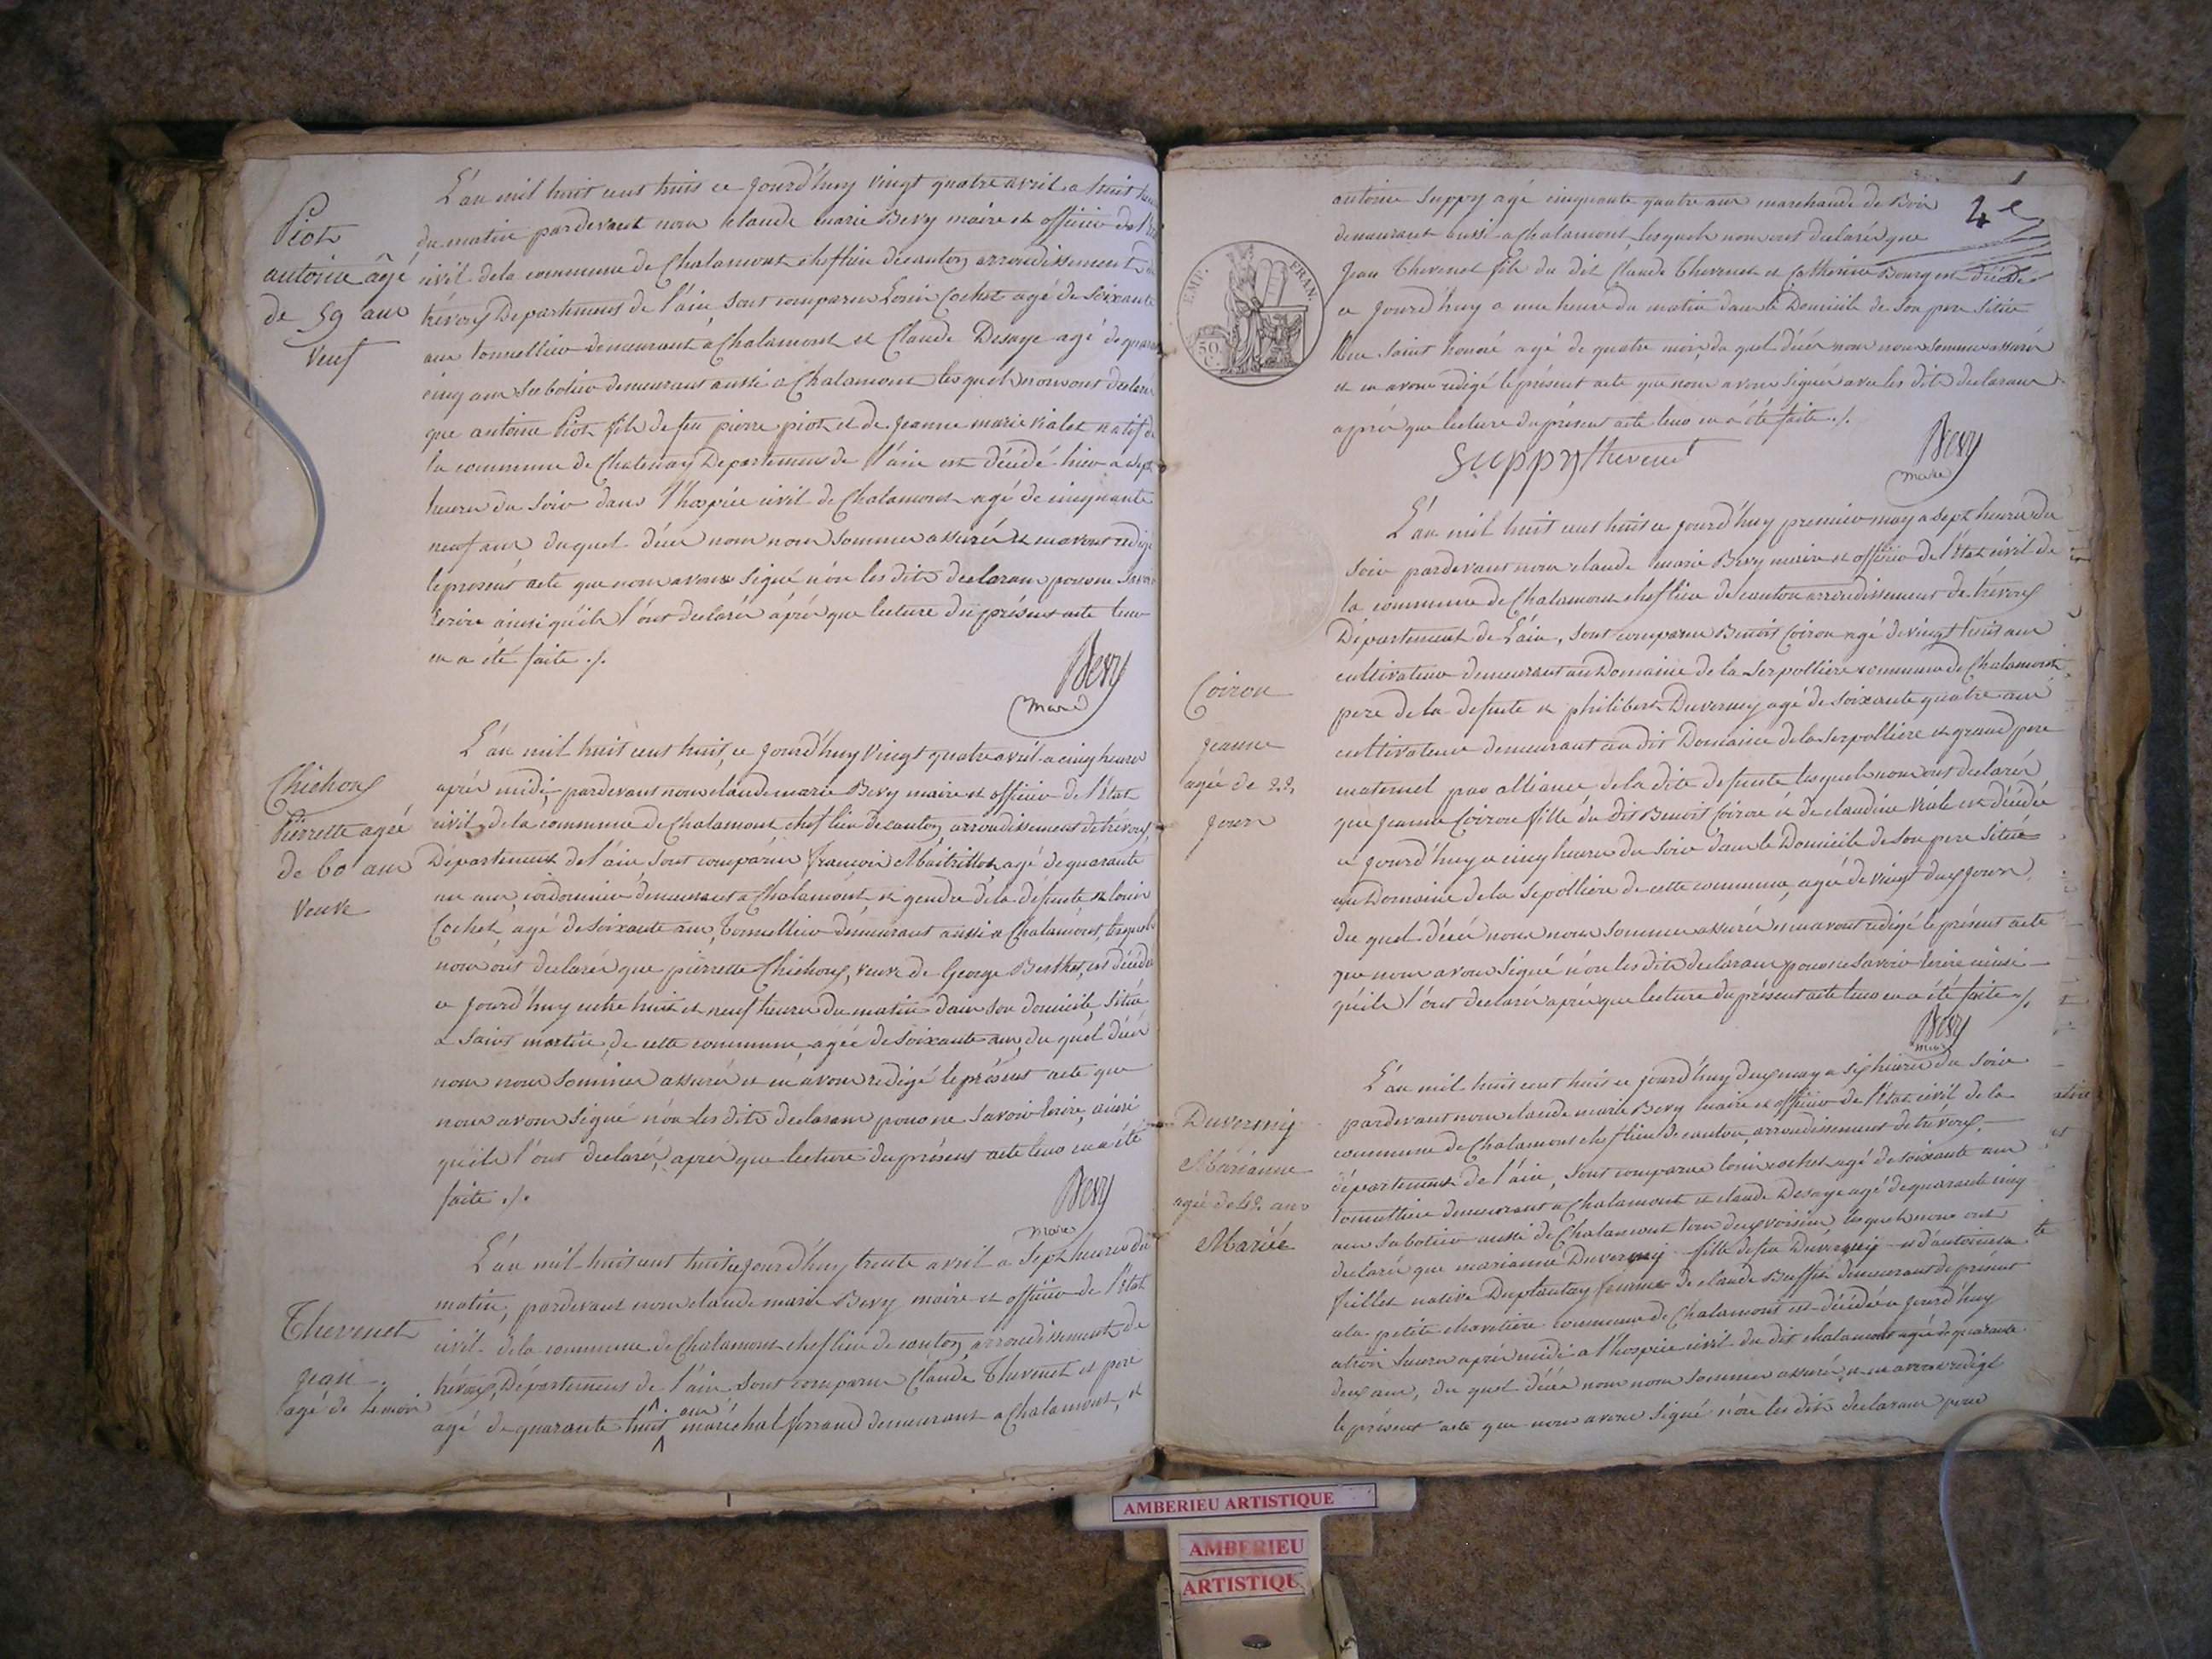 Piot
antoine âgé
de 59 ans
Veuf
L'an mil huit cent huit ce jourd'huy vingt quatre avril a huit heures
du matin pardevant nous claude marie Bevy maire et officier de l'État
civil de la commune de Chalamont cheflieu de canton arrondissement de
trévoux Departement de l'ain sont comparus Louis Cochet agé de soixante
ans tonnellier demeurant a Chalamont et Claude Desage agé de quarante
cinq ans sabotier demeurant aussi a Chalamont lesquels nous ont declaré
que antoine Piot fils de feu pierre piot et de Jeanne marie vialet natif de
la commune de Chatenay Departement de l'ain est décédé hier a sept
heures du soir dans l'hospice civil de Chalamont agé de cinquante
neuf ans duquel décès nous nous sommes assurés et en avons redigé
le present acte que nous avons signé non les dits declarans pour ne savoir
écrire ainsi qu'ils l'ont declaré après que lecture du présent acte leur
en a été faite ./.
Bevy
maire
Chichoux
Pierrette agée
de 60 ans
Veuve
L'an mil huit cent huit, ce jourd'huy vingt quatre avril a cinq heures
après midi, pardevant nous claude marie Bevy maire et officier de l'État
civil de la commune de Chalamont cheflieu de canton, arrondissement de trevoux
Département de l'ain sont comparus françois Maitrillot, agé de quarante
un ans, cordonnier demeurant a Chalamont, et gendre de la défunte et louis
Cochet, agé de soixante ans, Tonnellier demeurant aussi a Chalamont, lesquels
nous ont declaré que pierrette Chichoux, veuve de George Berthet, est décédée
ce jourd'huy entre huit et neuf heures du matin dans son domicile, situé
a saint martin, de cette commune, agée de soixante ans, du quel décès
nous nous sommes assurés et en avons redigé le présent acte que
nous avons signé non les dits declarans pour ne savoir écrire, ainsi
qu'ils l'ont declaré, après que lecture du présent acte leur en a été
faite ./.
Bevy
maire
Thevenet
Jean
agé de 4 mois
L'an mil huit cent huit ce jourd'huy trente avril a sept heures du
matin, pardevant nous claude marie Bevy maire et officier de l'État
civil de la commune de Chalamont cheflieu de canton, arrondissement de
trévoux, Département de l'ain sont comparus Claude Thevenet et pere
agé de quarante huit ans marechal ferrand demeurant a Chalamont, et
4e
EMP. FRAN.
50 C.
antoine Suppy agé cinquante quatre ans marchand de Bois
demeurant aussi a Chalamont lesquels nous ont declaré que
Jean Thevenet fils du dit Claude Thevenet et Catherine Bourg est décédé
ce jourd'huy a une heure du matin dans le Domicile de son pere situé
Rue saint honoré agé de quatre mois, du quel décès nous nous sommes assurés
et en avons redigé le présent acte que nous avons signé avec les dits declarans
après que lecture du présent acte leur en a été faite ./.
Suppy thevenet
Bevy
maire
Coiron
Jeanne
agée de 22
jours
L'an mil huit cent huit ce jourd'huy premier may a sept heures du
soir pardevant nous claude marie Bevy maire et officier de l'État civil de
la commune de Chalamont cheflieu de canton arrondissement de trévoux
Département de l'ain, sont comparus Benoit Coiron agé de vingt huit ans
cultivateur demeurant au Domaine de la Serpolliere commune de Chalamont
pere de la defunte et philibert Duverney agé de soixante quatre ans
cultivateur demeurant au dit Domaine de la Serpolliere et grand pere
maternel par alliance de la dite defunte, lesquels nous ont declaré
que Jeanne Coiron fille du dit Benoit Coiron et de claudine Viale est décédée
ce jourd'huy a cinq heures du soir dans le Domicile de son pere situé
au Domaine de la Sepolliere de cette commune, agée de vingt deux jours
du quel décès nous nous sommes assurés en avons redigé le présent acte
que nous avons signé non les dits declarans pour ne savoir écrire ainsi
qu'ils l'ont declaré après que lecture du présent acte leur en a été faite ./.
Bevy
maire
Duverney
Marianne
agée de 42 ans
Mariée
L'an mil huit cent huit ce jourd'huy deux may a six heures du soir
pardevant nous claude marie Bevy maire et officier de l'État civil de la
commune de Chalamont cheflieu de canton, arrondissement de trévoux,
département de l'ain, sont comparus louis cochet agé de soixante ans
tonnellier demeurant a Chalamont et claude Desage agé de quarante cinq
ans sabotier aussi de Chalamont tous deux voisins, lesquels nous ont
declaré que marianne Duverney fille de feu Duverney et d'antoinette
native Duplantay femme de claude Buffet demeurant de présent
a la petite chavetiere commune de Chalamont est décédée ce jourd'huy
a trois heures après midi a l'hospice civil du dit chalamont agée de quarante
deux ans, du quel décès nous nous sommes assurés, et en avons redigé
le présent acte que nous avons signé non les dits declarans pour
AMBERIEU ARTISTIQUE
AMBERIEU
ARTISTIQUE